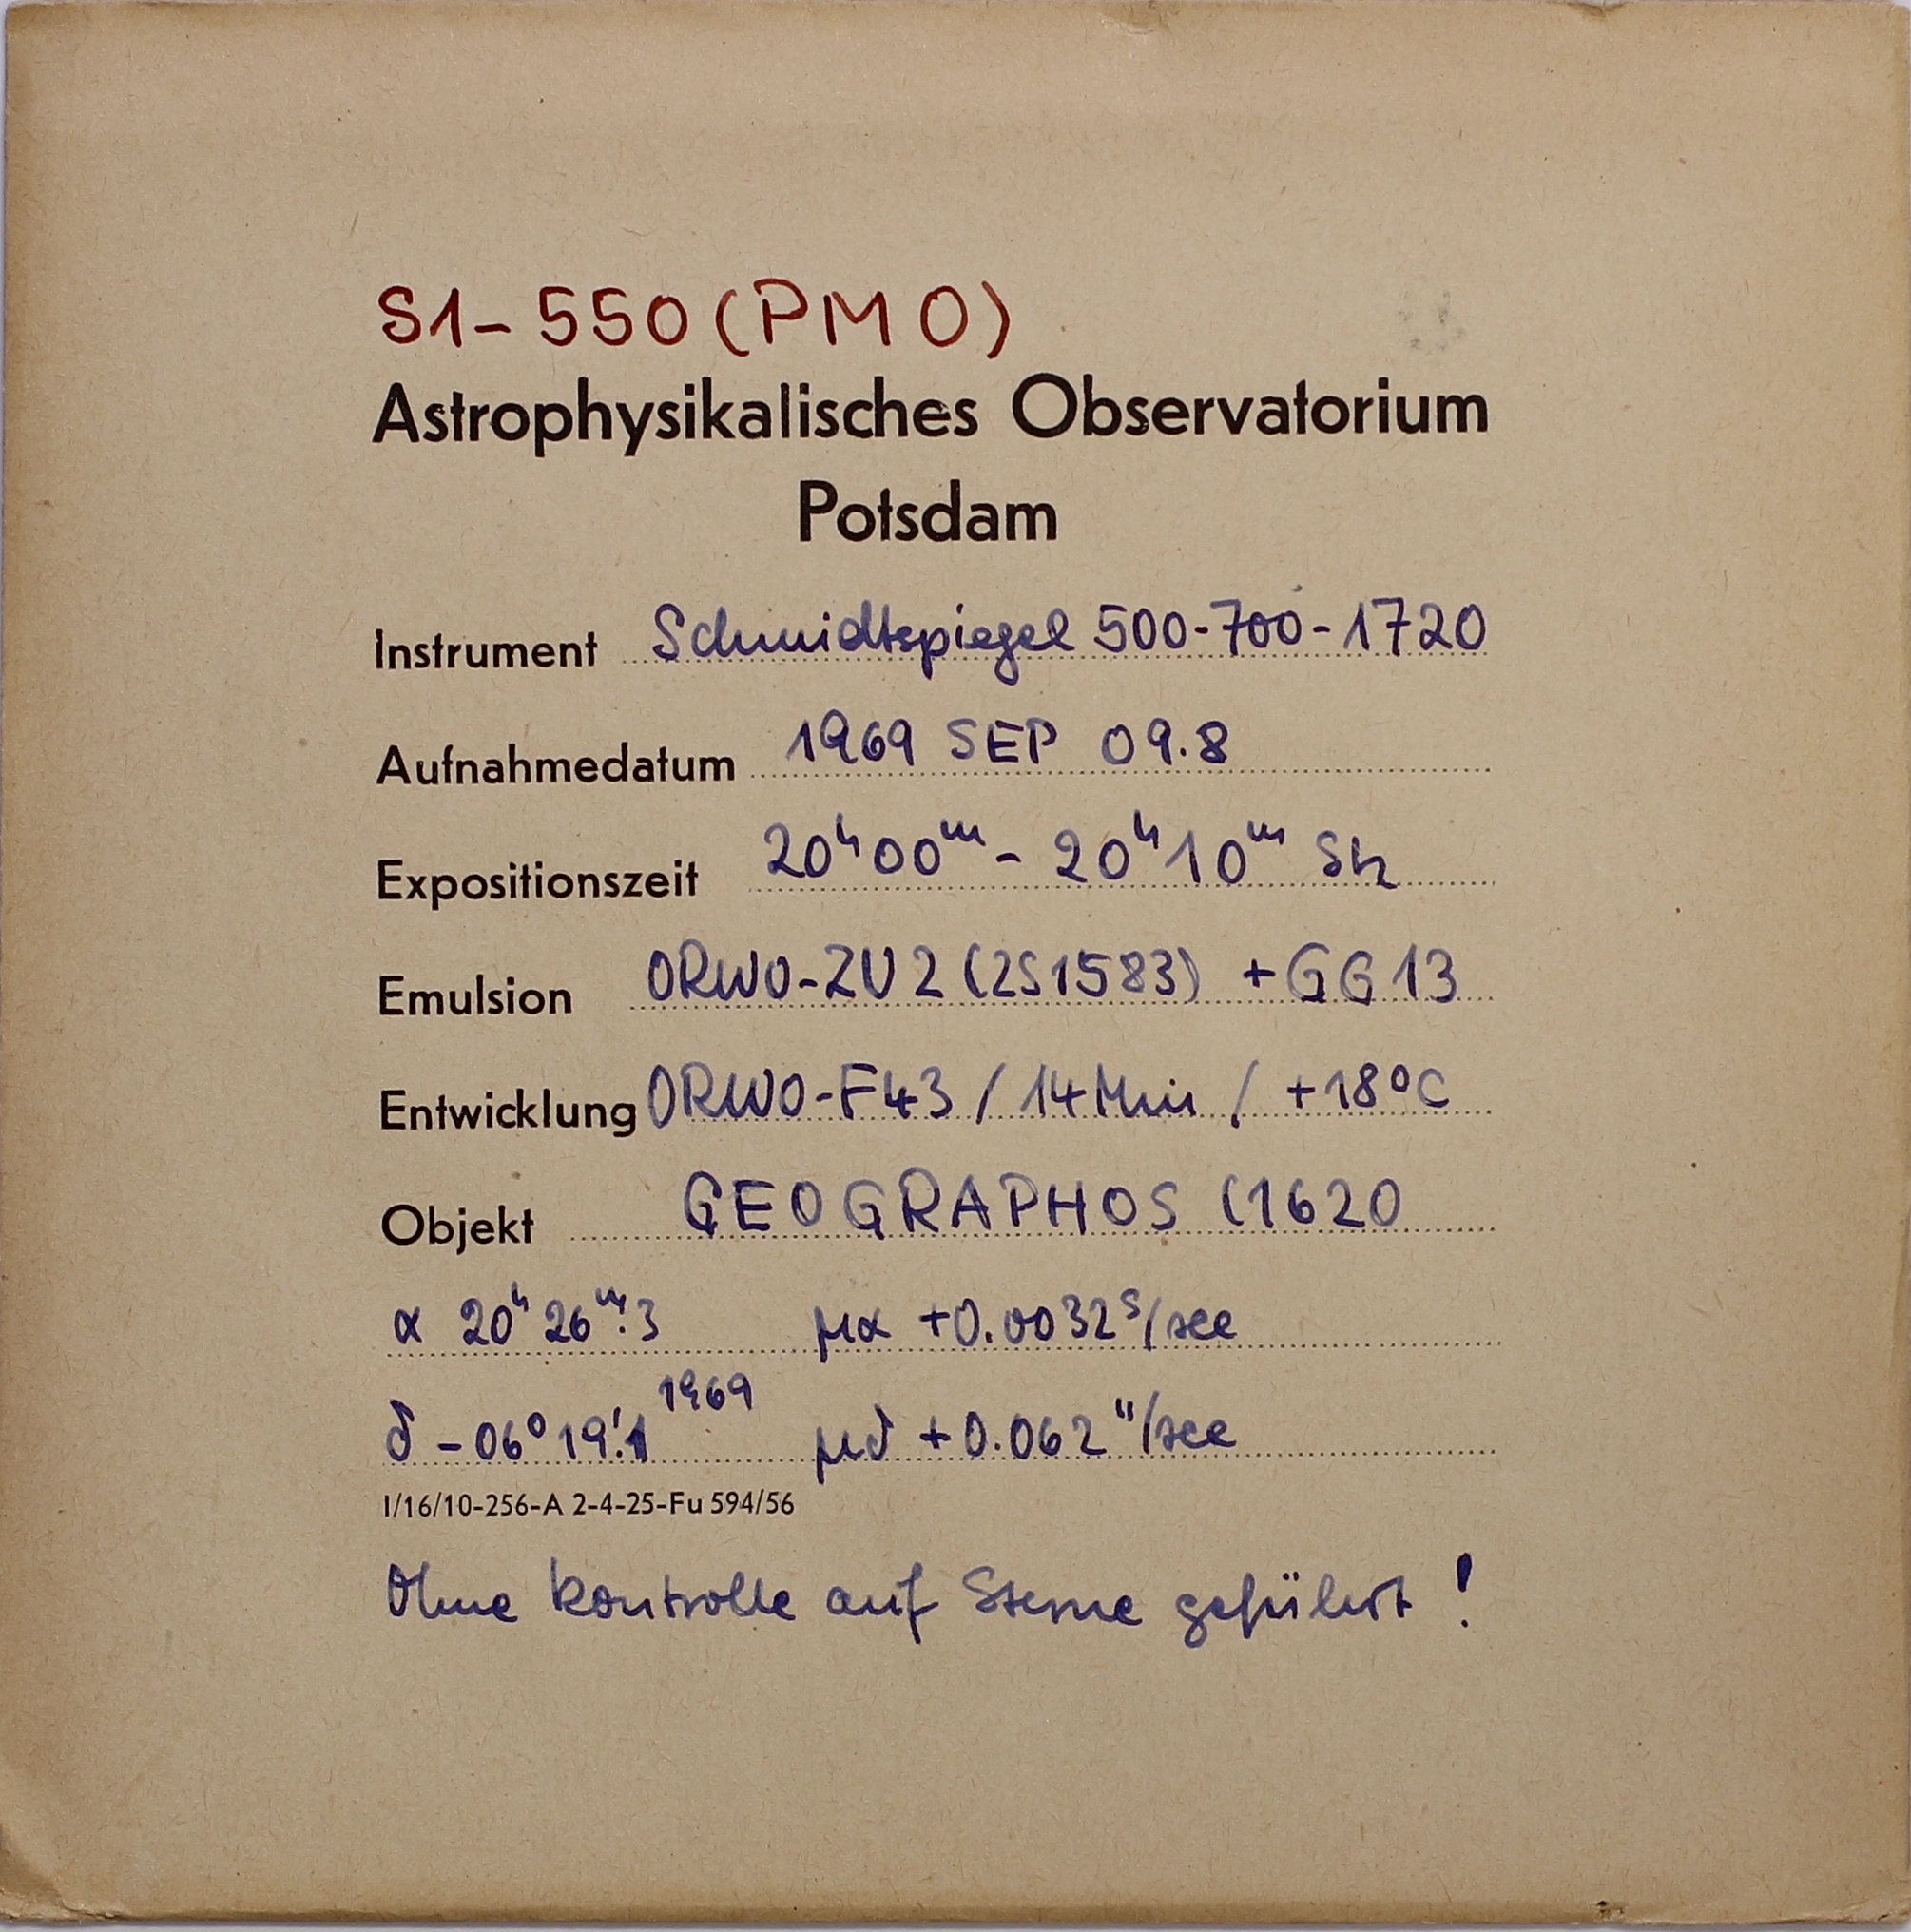 S1-550(PMO)
Astrophysikalisches Observatorium
Potsdam
Instrument Schmidtspiegel 500-700-1720
Aufnahmedatum 1969 SEP 09.8
Expositionszeit 20ʰ00ᵐ - 20ʰ10ᵐ
Emulsion ORWO-ZU2 (2S1583) +GG13
Entwicklung ORWO-F43 / 14 Min / +18°C
Objekt GEOGRAPHOS (1620
α 20ʰ 26ᵐ.3 μα +0.0032ˢ/sec
δ -06° 19'.1 1969 μδ +0.062"/sec
I/16/10-256-A 2-4-25-Fu 594/56
Ohne Kontrolle auf Sterne geführt !